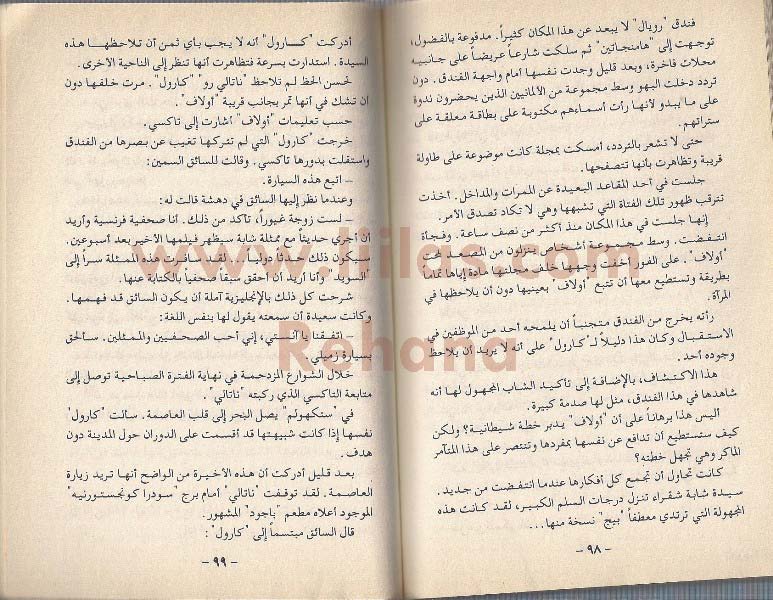 فندق "رويال" لا يبعد عن هذا المكان كثيراً. مدفوعة بالفضول،
توجهت إلى "هامنجاتين" ثم سلكت شارعاً عريضاً على جانبيه
محلات فاخرة، وبعد قليل وجدت نفسها أمام واجهة الفندق. دون
تردد دخلت البهو وسط مجموعة من الألمانيين الذين يحضرون ندوة
على ما يبدو لأنها رأت أسماءهم مكتوبة على بطاقة معلقة على
ستراتهم.
حتى لا تشعر بالتردد، أمسكت بمجلة كانت موضوعة على طاولة
قريبة وتظاهرت بأنها تتصفحها.
جلست في أحد المقاعد البعيدة عن الممرات والمداخل. أخذت
تترقب ظهور تلك الفتاة التي تشبهها وهي لا تكاد تصدق الأمر.
إنها جلست في هذا المكان منذ أكثر من نصف ساعة. وفجأة
انتفضت. وسط مجموعة أشخاص ينزلون من المصعد لمحت
"أولاف". على الفور أخفت وجهها خلف مجلتها مادة إياها تماماً
بطريقة وتستطيع معها أن تتبع "أولاف" بعينيها دون أن يلاحظها في
المرآة.
رأته يخرج من الفندق متجنباً أن يلمحه أحد من الموظفين في
الاستقبال وكان هذا دليلاً لـ"كارول" على أنه لا يريد أن يلاحظ
وجوده أحد.
هذا الاكتشاف، بالإضافة إلى تأكيد الشاب المجهول لها أنه
شاهدها في هذا الفندق، مثل لها صدمة كبيرة.
أليس هذا برهاناً على أن "أولاف" يدبر خطة شيطانية؟ ولكن
كيف ستستطيع أن تدافع عن نفسها بمفردها وتنتصر على هذا المتآمر
الماكر وهي تجهل خطته؟
كانت تحاول أن تجمع كل أفكارها عندما انتفضت من جديد.
سيدة شابة شقراء تنزل درجات السلم الكبير، لقد كانت هذه
المجهولة التي ترتدي معطفاً "بيج" نسخة منها...
- ٩٨ -
أدركت "كارول" أنه لا يجب بأي ثمن أن تلاحظها هذه
السيدة. استدارت بسرعة فتظاهرت أنها تنظر إلى الناحية الأخرى.
لحسن الحظ لم تلاحظ "ناتالي رو" "كارول". مرت خلفها دون
أن تشك في أنها تمر بجانب قريبة "أولاف".
حسب تعليمات "أولاف" أشارت إلى تاكسي.
خرجت "كارول" التي لم تتركها تغيب عن بصرها من الفندق
واستقلت بدورها تاكسي. وقالت للسائق السمين:
- اتبع هذه السيارة.
وعندما نظر إليها السائق في دهشة قالت له:
- لست زوجة غيوراً، تأكد من ذلك. أنا صحفية فرنسية وأريد
أن أجري حديثاً مع ممثلة شابة سيظهر فيلمها الأخير بعد أسبوعين.
سيكون ذلك حدثاً دولياً.. لقد سافرت هذه الممثلة سراً إلى
"السويد" وأنا أريد أن أحقق سبقاً صحفياً بالكتابة عنها.
شرحت كل ذلك بالإنجليزية آملة أن يكون السائق قد فهمها.
وكانت سعيدة أن سمعته يقول لها بنفس اللغة:
- اتفقنا يا آنستي، إني أحب الصحفيين والممثلين. سألحق
بسيارة زميلي.
خلال الشوارع المزدحمة في نهاية الفترة الصباحية توصل إلى
متابعة التاكسي الذي ركبته "ناتالي".
في "ستكهولم" يصل البحر إلى قلب العاصمة. سألت "كارول"
نفسها إذا كانت شبيهتها قد أقسمت على الدوران حول المدينة دون
هدف.
بعد قليل أدركت أن هذه الأخيرة من الواضح أنها تريد زيارة
العاصمة. لقد توقفت "ناتالي" أمام برج "سودرا كونجستورنيه"
الموجود أعلاه مطعم "باجود" المشهور.
قال السائق مبتسماً إلى "كارول":
- ٩٩ -
Rehana